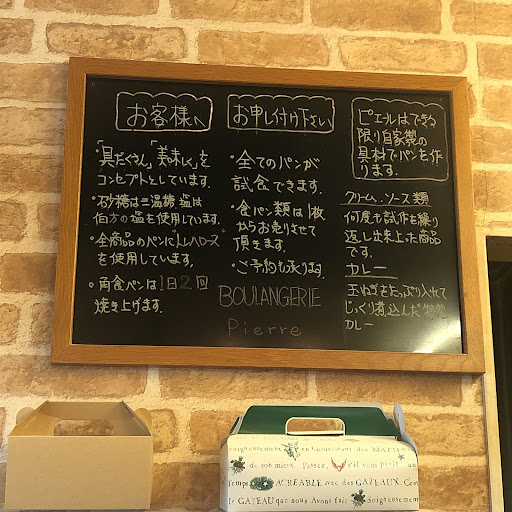 お客様へ
・「具だくさん」「美味しく」を
コンセプトとしています。
・砂糖は三温糖 塩は
伯方の塩を使用しています。
・全商品のパンに"トレハロース"
を使用しています。
・角食パンは1日2回
焼き上げます。
お申し付け下さい
・全てのパンが
試食できます。
・食パン類は1枚
からお売りさせて
頂きます。
・ご予約も承ります。
BOULANGERIE
Pierre
ピエールはできる
限り自家製の
具材でパンを作
ります。
クリーム、ソース類
何度も試作を繰り
返し出来上った商品
です。
カレー
玉ねぎをたっぷり入れて
じっくり煮込んだ
カレー
Soigneusement
de son mieux. Passez, s'il vous plaît un
Temps AGREABLE avec des GATEAUX.
le GATEAU que nous Avons fait Soigneusement